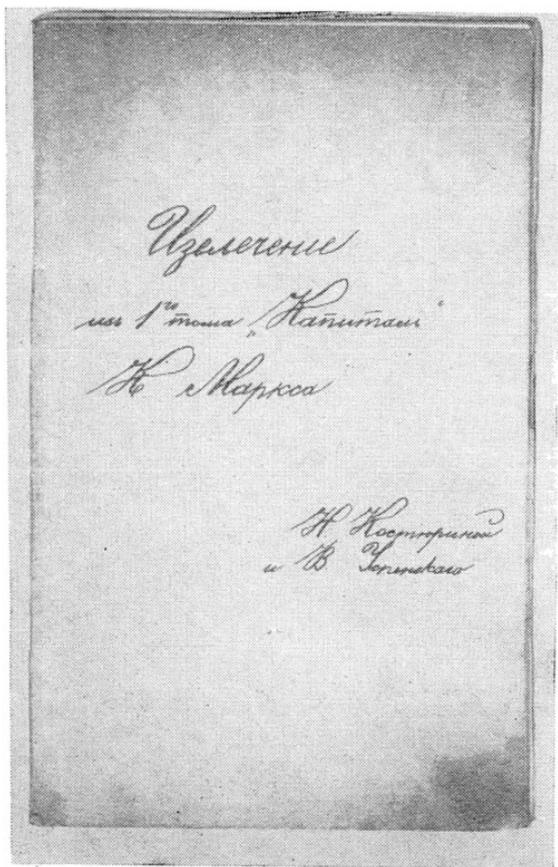 Извлечение
изъ 1го тома „Капиталъ“
К Маркса
Н Костюриной
и В. Успенскаго